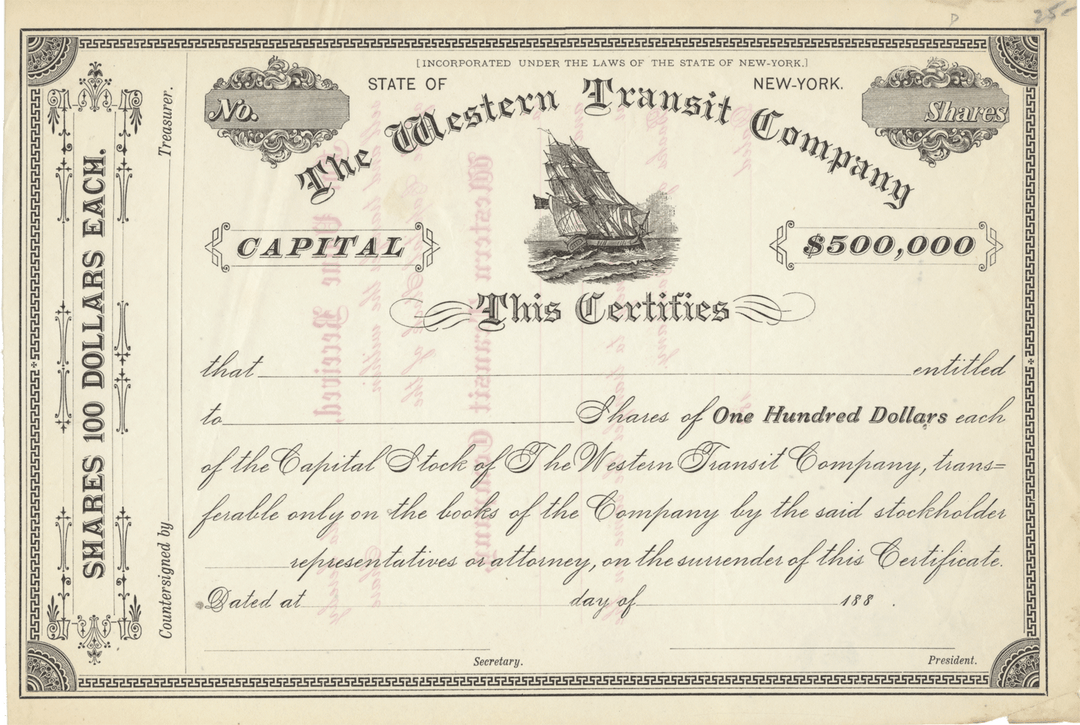 25-
[INCORPORATED UNDER THE LAWS OF THE STATE OF NEW-YORK.]
STATE OF NEW-YORK.
No. Shares
The Western Transit Company
CAPITAL $500,000
This Certifies
that entitled
to Shares of One Hundred Dollars each
of the Capital Stock of The Western Transit Company, trans=
ferable only on the books of the Company by the said stockholder
representatives or attorney, on the surrender of this Certificate.
Dated at day of 188 .
Secretary. President.
Countersigned by Treasurer.
SHARES 100 DOLLARS EACH.
Western Transit Company
Value Received,